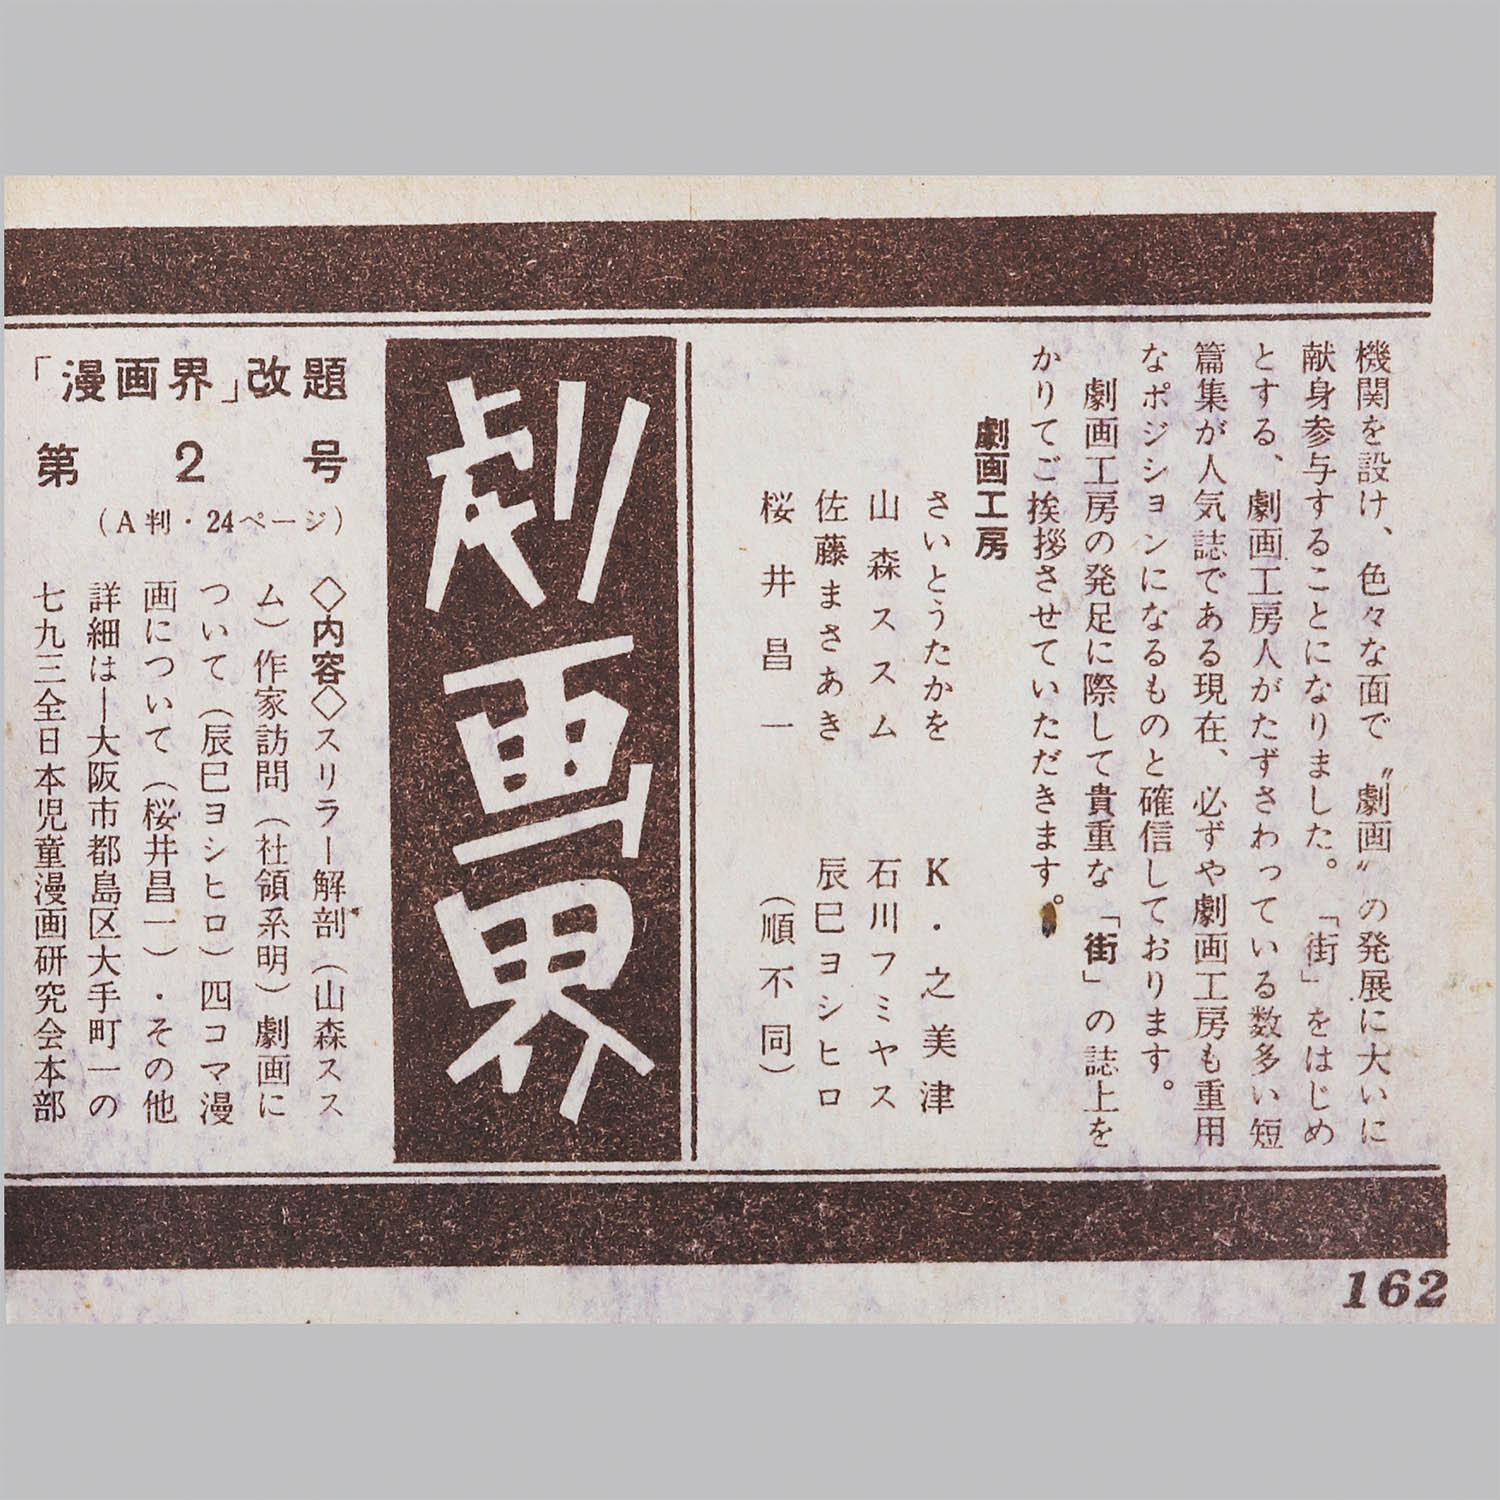 機関を設け、色々な面で〝劇画〟の発展に大いに
献身参与することになりました。「街」をはじめ
とする、劇画工房人がたずさわっている数多い短
篇集が人気誌である現在、必ずや劇画工房も重用
なポジションになるものと確信しております。
劇画工房の発足に際して貴重な「街」の誌上を
かりてご挨拶させていただきます。
劇画工房
さいとうたかを　K・之美津
山森ススム　石川フミヤス
佐藤まさあき　辰巳ヨシヒロ
桜井昌一　（順不同）
劇画界
「漫画界」改題
第2号
（A判・24ページ）
◇内容◇スリラー解剖（山森スス
ム）作家訪問（社領系明）劇画に
ついて（辰巳ヨシヒロ）四コマ漫
画について（桜井昌一）・その他
詳細は―大阪市都島区大手町一の
七九三全日本児童漫画研究会本部
162